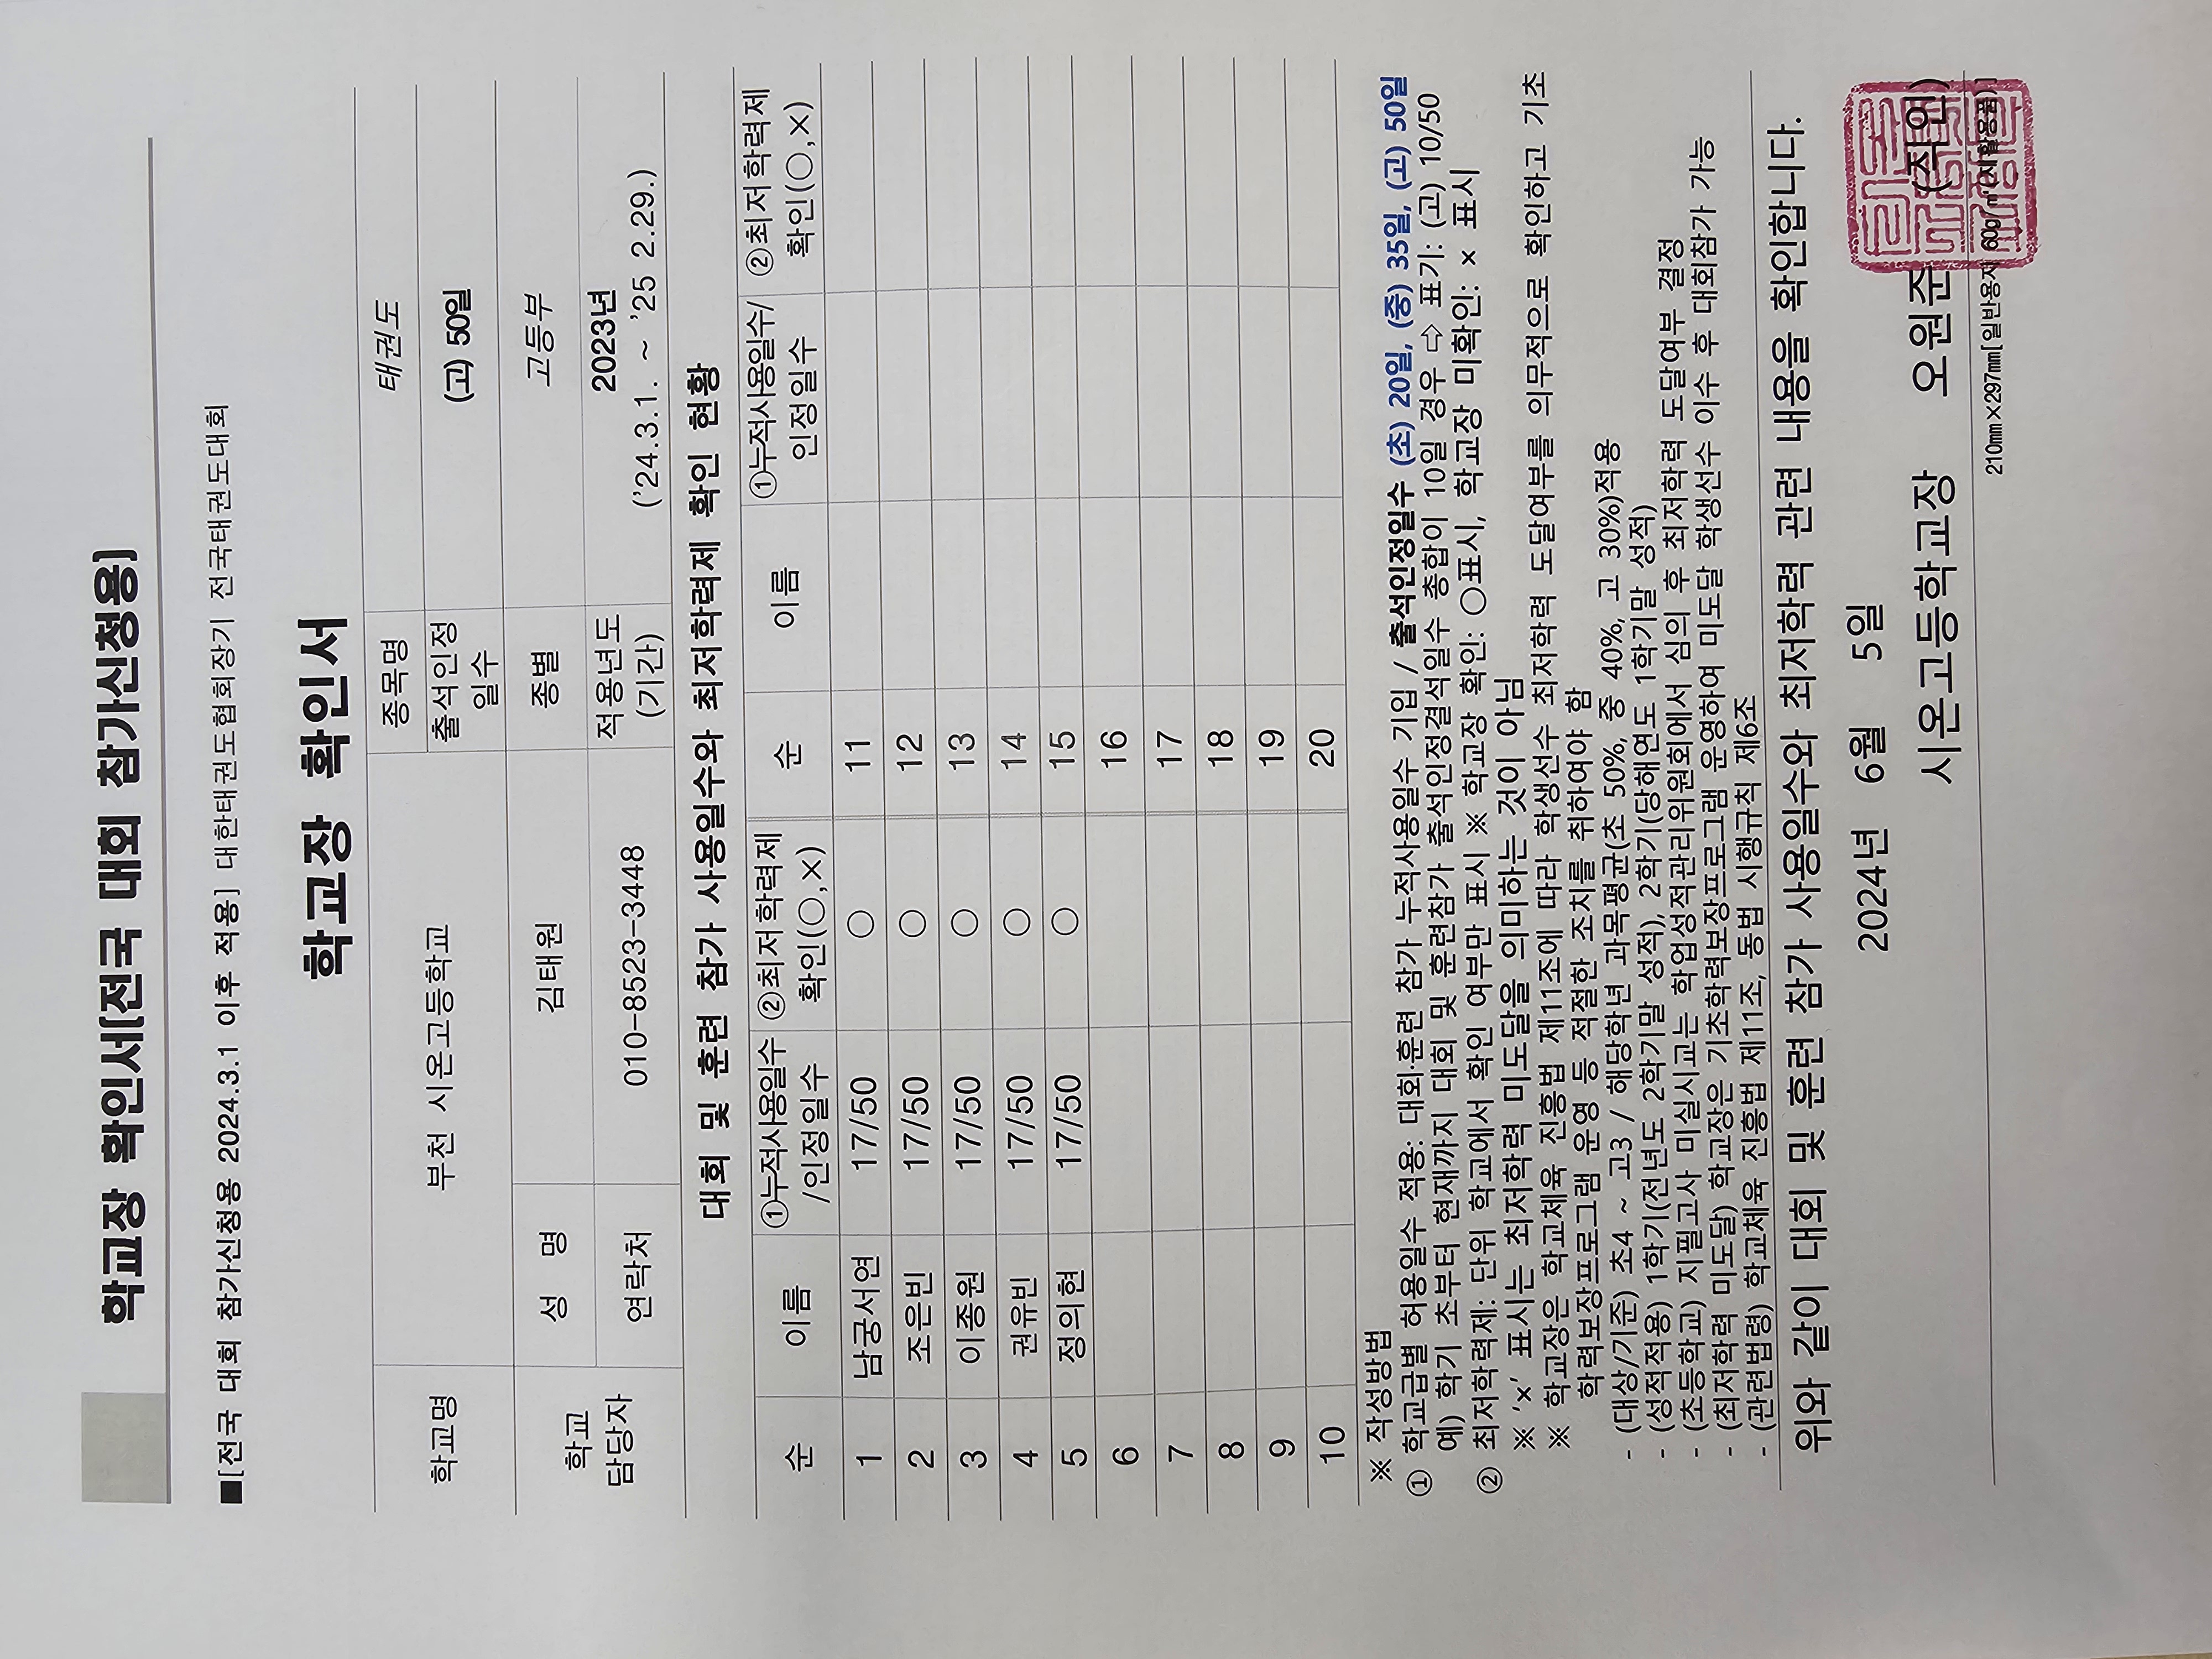 학교장 확인서[전국 대회 참가신청용]
■[전국 대회 참가신청용 2024.3.1 이후 적용] 대한태권도협회장기 전국태권도대회
학교장 확인서
학교명 부천 시온고등학교 종목명 태권도
출석인정 일수 (고) 50일
학교 담당자 성 명 김태원 종별 고등부
연락처 010-8523-3448 적용년도 (기간) 2023년
('24.3.1. ~ '25 2.29.)
대회 및 훈련 참가 사용일수와 최저학력제 확인 현황
순 이름 ①누적사용일수 /인정일수 ②최저학력제 확인(○,×) 순 이름 ①누적사용일수/ 인정일수 ②최저학력제 확인(○,×)
1 남궁서연 17/50 ○ 11
2 조은빈 17/50 ○ 12
3 이종원 17/50 ○ 13
4 권유빈 17/50 ○ 14
5 정의현 17/50 ○ 15
6 16
7 17
8 18
9 19
10 20
※ 작성방법
① 학교급별 허용일수 적용: 대회·훈련 참가 누적사용일수 기입 / 출석인정일수 (초) 20일, (중) 35일, (고) 50일
예) 학기 초부터 현재까지 대회 및 훈련참가 출석인정결석일수 총합이 10일 경우 ⇨ 표기: (고) 10/50
② 최저학력제: 단위 학교에서 확인 여부만 표시 ※ 학교장 확인: ○표시, 학교장 미확인: × 표시
※ 'x' 표시는 최저학력 미도달을 의미하는 것이 아님
※ 학교장은 학교체육 진흥법 제11조에 따라 학생선수 최저학력 도달여부를 의무적으로 확인하고 기초
학력보장프로그램 운영 등 적절한 조치를 취하여야 함
- (대상/기준) 초4 ~ 고3 / 해당학년 과목평균(초 50%, 중 40%, 고 30%)적용
- (성적적용) 1학기(전년도 2학기말 성적), 2학기(당해연도 1학기말 성적)
- (초등학교) 지필고사 미실시교는 학업성적관리위원회에서 심의 후 최저학력 도달여부 결정
- (최저학력 미도달) 학교장은 기초학력보장프로그램 운영하여 미도달 학생선수 이수 후 대회참가 가능
- (관련법령) 학교체육 진흥법 제11조, 동법 시행규칙 제6조
위와 같이 대회 및 훈련 참가 사용일수와 최저학력 관련 내용을 확인합니다.
2024년 6월 5일
시온고등학교장 오원준 (직인)
210㎜×297㎜[일반용지 60g/㎡(재활용품)]